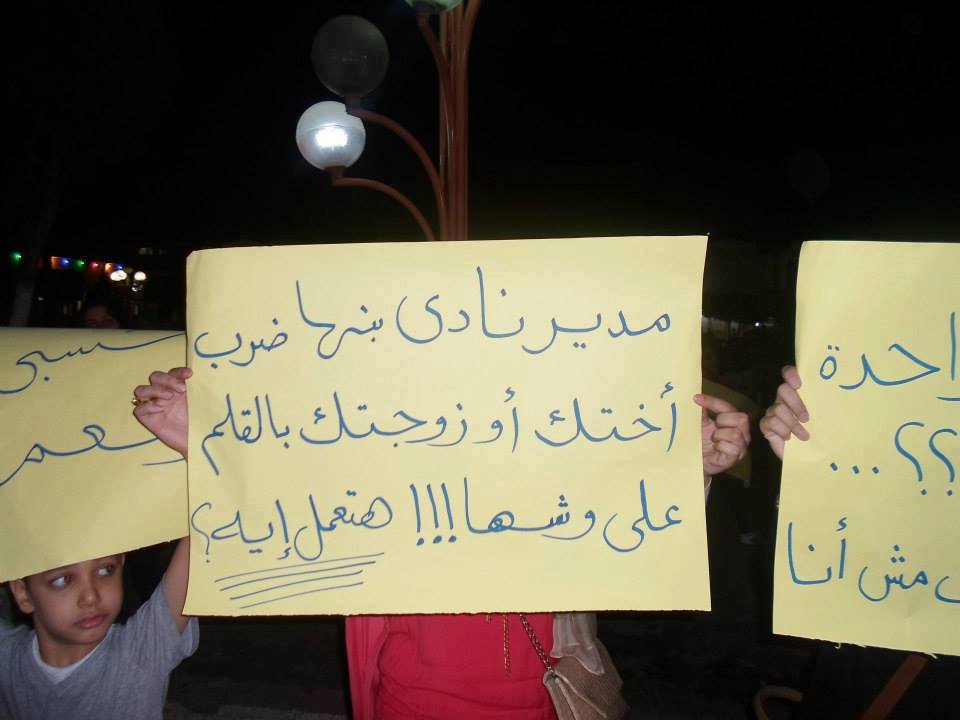 مدير نادى بنها ضرب
أختك أو زوجتك بالقلم
على وشها!!! هتعمل إيه؟
احدة
؟؟...
مش أنا